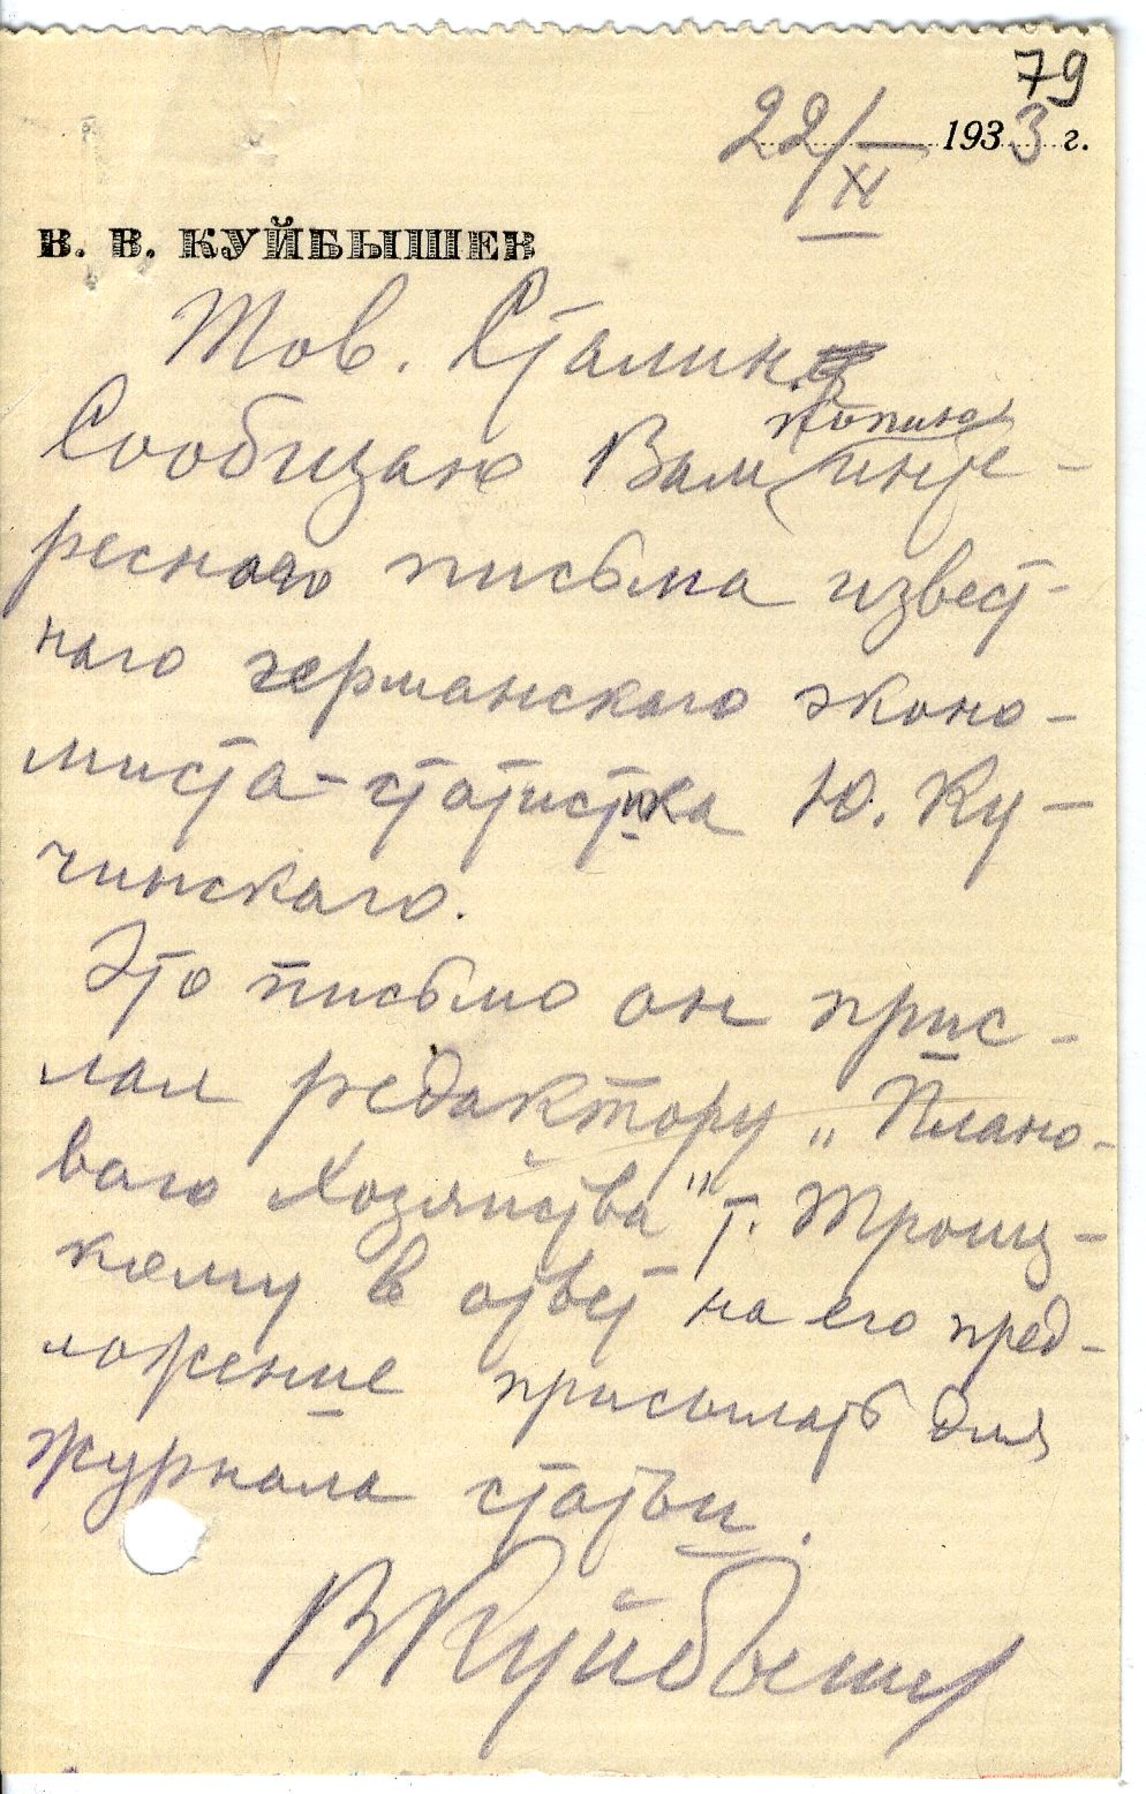 79
22/XI 1933 г.
В. В. КУЙБЫШЕВ
Тов. Сталин
копию
Сообщаю Вам инте-
ресного письма извест-
ного германского эконо-
миста-статистика Ю. Ку-
чинского.
Это письмо он прис-
лал редактору „Плано-
вого Хозяйства" т. Троиц-
кому в ответ на его пред-
ложение присылать для
журнала статьи.
В Куйбышев